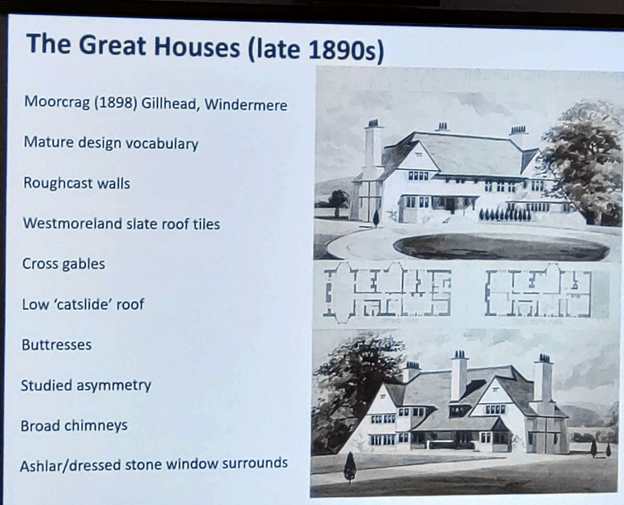 The Great Houses (late 1890s)
Moorcrag (1898) Gillhead, Windermere
Mature design vocabulary
Roughcast walls
Westmoreland slate roof tiles
Cross gables
Low ‘catslide’ roof
Buttresses
Studied asymmetry
Broad chimneys
Ashlar/dressed stone window surrounds